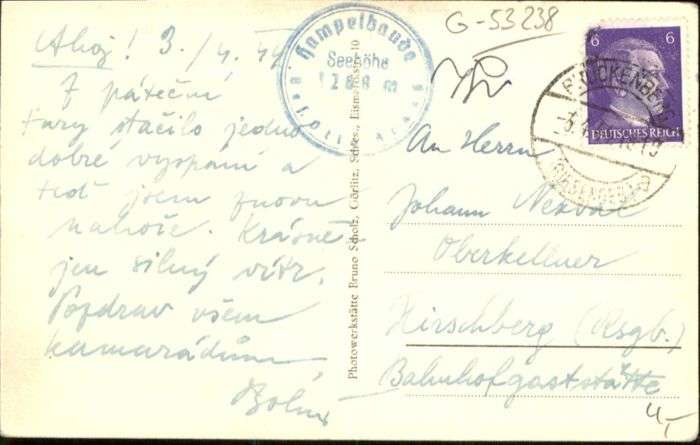 Ahoj! 3./4. 44
Z páteční
túry stačilo jedno
dobré vyspání a
teď jsem znovu
nahoře. Krásně
jen silný vítr.
Pozdrav všem
kamarádům
Hampelbaude
Seehöhe
1258 m
G-53238
6 6
DEUTSCHES REICH
An Herrn
Johann Nesval
Oberkellner
Hirschberg (Rsgb.)
Bahnhofgaststätte
4,-
Photowerkstätte Bruno Scholz, Görlitz, Schles., Eismarktstr. 10